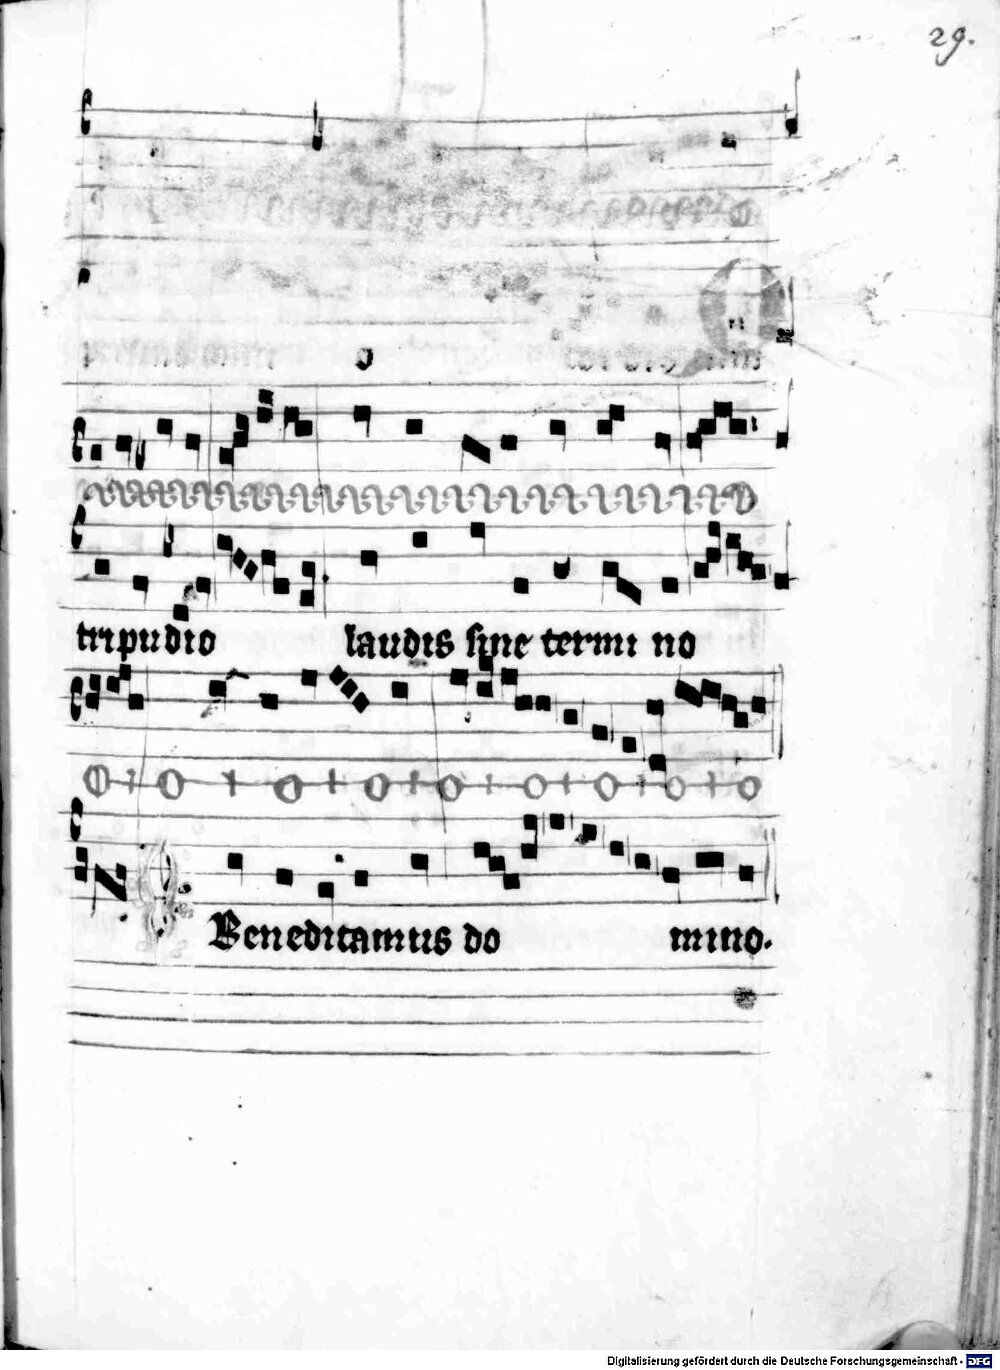 29.
o
tripudio laudis sine termi no
Benedicamus do mino.
Digitalisierung gefördert durch die Deutsche Forschungsgemeinschaft - DFG